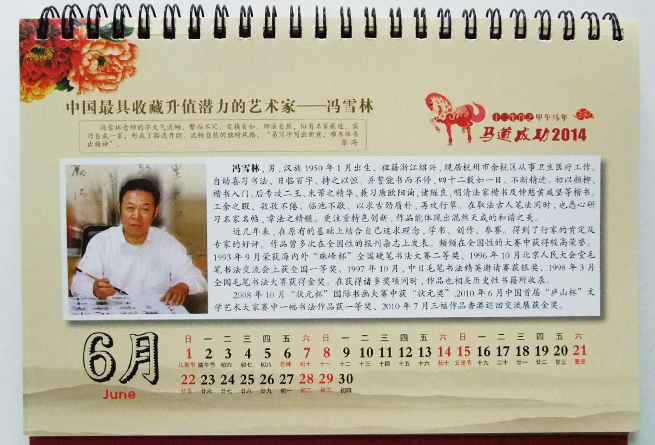 中国最具收藏升值潜力的艺术家——冯雪林
十二生肖之甲午马年
马道成功2014
冯雪林,男,汉族1950年1月出生、祖籍浙江绍兴,现居杭州市余杭区从事卫生医疗工作。
自幼喜习书法、日临百字、持之以恒。并誓绕书而不停,四十二载如一日、不断精进、初以颜柳、
楷书入门,后专攻二王、米芾之精华、兼习唐欧阳洵、诸随良,明清诸家楷书及仲慈黄庭坚等楷书。
工余之暇、孜孜不倦、临池不缀、以求古劲质朴、再现行草。在取法古人笔法同时,也悉心研
习名家名帖,章法之精髓。更注重特色创新、作品能体现出混然天成的和谐之美。
近几年来、在原有的基础上结合自己追求理念、学书、创作、参赛。得到了行家的肯定及
专家的好评。作品曾多次在全国性的报刊杂志上发表。频频在全国性的大赛中获得较高荣誉。
1993年9月荣获海内外“珠峰杯”全国硬笔书法大赛二等奖、1996年10月北京人民大会堂毛
笔书法交流会上获全国一等奖、1997年10月,中日毛笔书法精英邀请赛获银奖、1998年3月
全国毛笔书法大赛获得金奖。在获得诸多奖项同时,作品也相关历史性书籍所收录。
2008年10月“状元杯”国际书画大赛中获“状元奖”,2010年6月中国首届“庐山杯”文
学艺术大家赛中一幅书法作品获一等奖、2010年7月三幅作品香港巡回交流展获金奖。
6月
June
日 一 二 三 四 五 六 日 一 二 三 四 五 六 日 一 二 三 四 五 六
1 2 3 4 5 6 7 8 9 10 11 12 13 14 15 16 17 18 19 20 21
儿童节 端午节 初六 初七 初八 芒种 初十 十一 十二 十三 十四 十五 十六 十七 父亲节 十九 二十 廿一 廿二 廿三 夏至
22 23 24 25 26 27 28 29 30
廿五 廿六 廿七 廿八 廿九 初一 初二 初三 初四